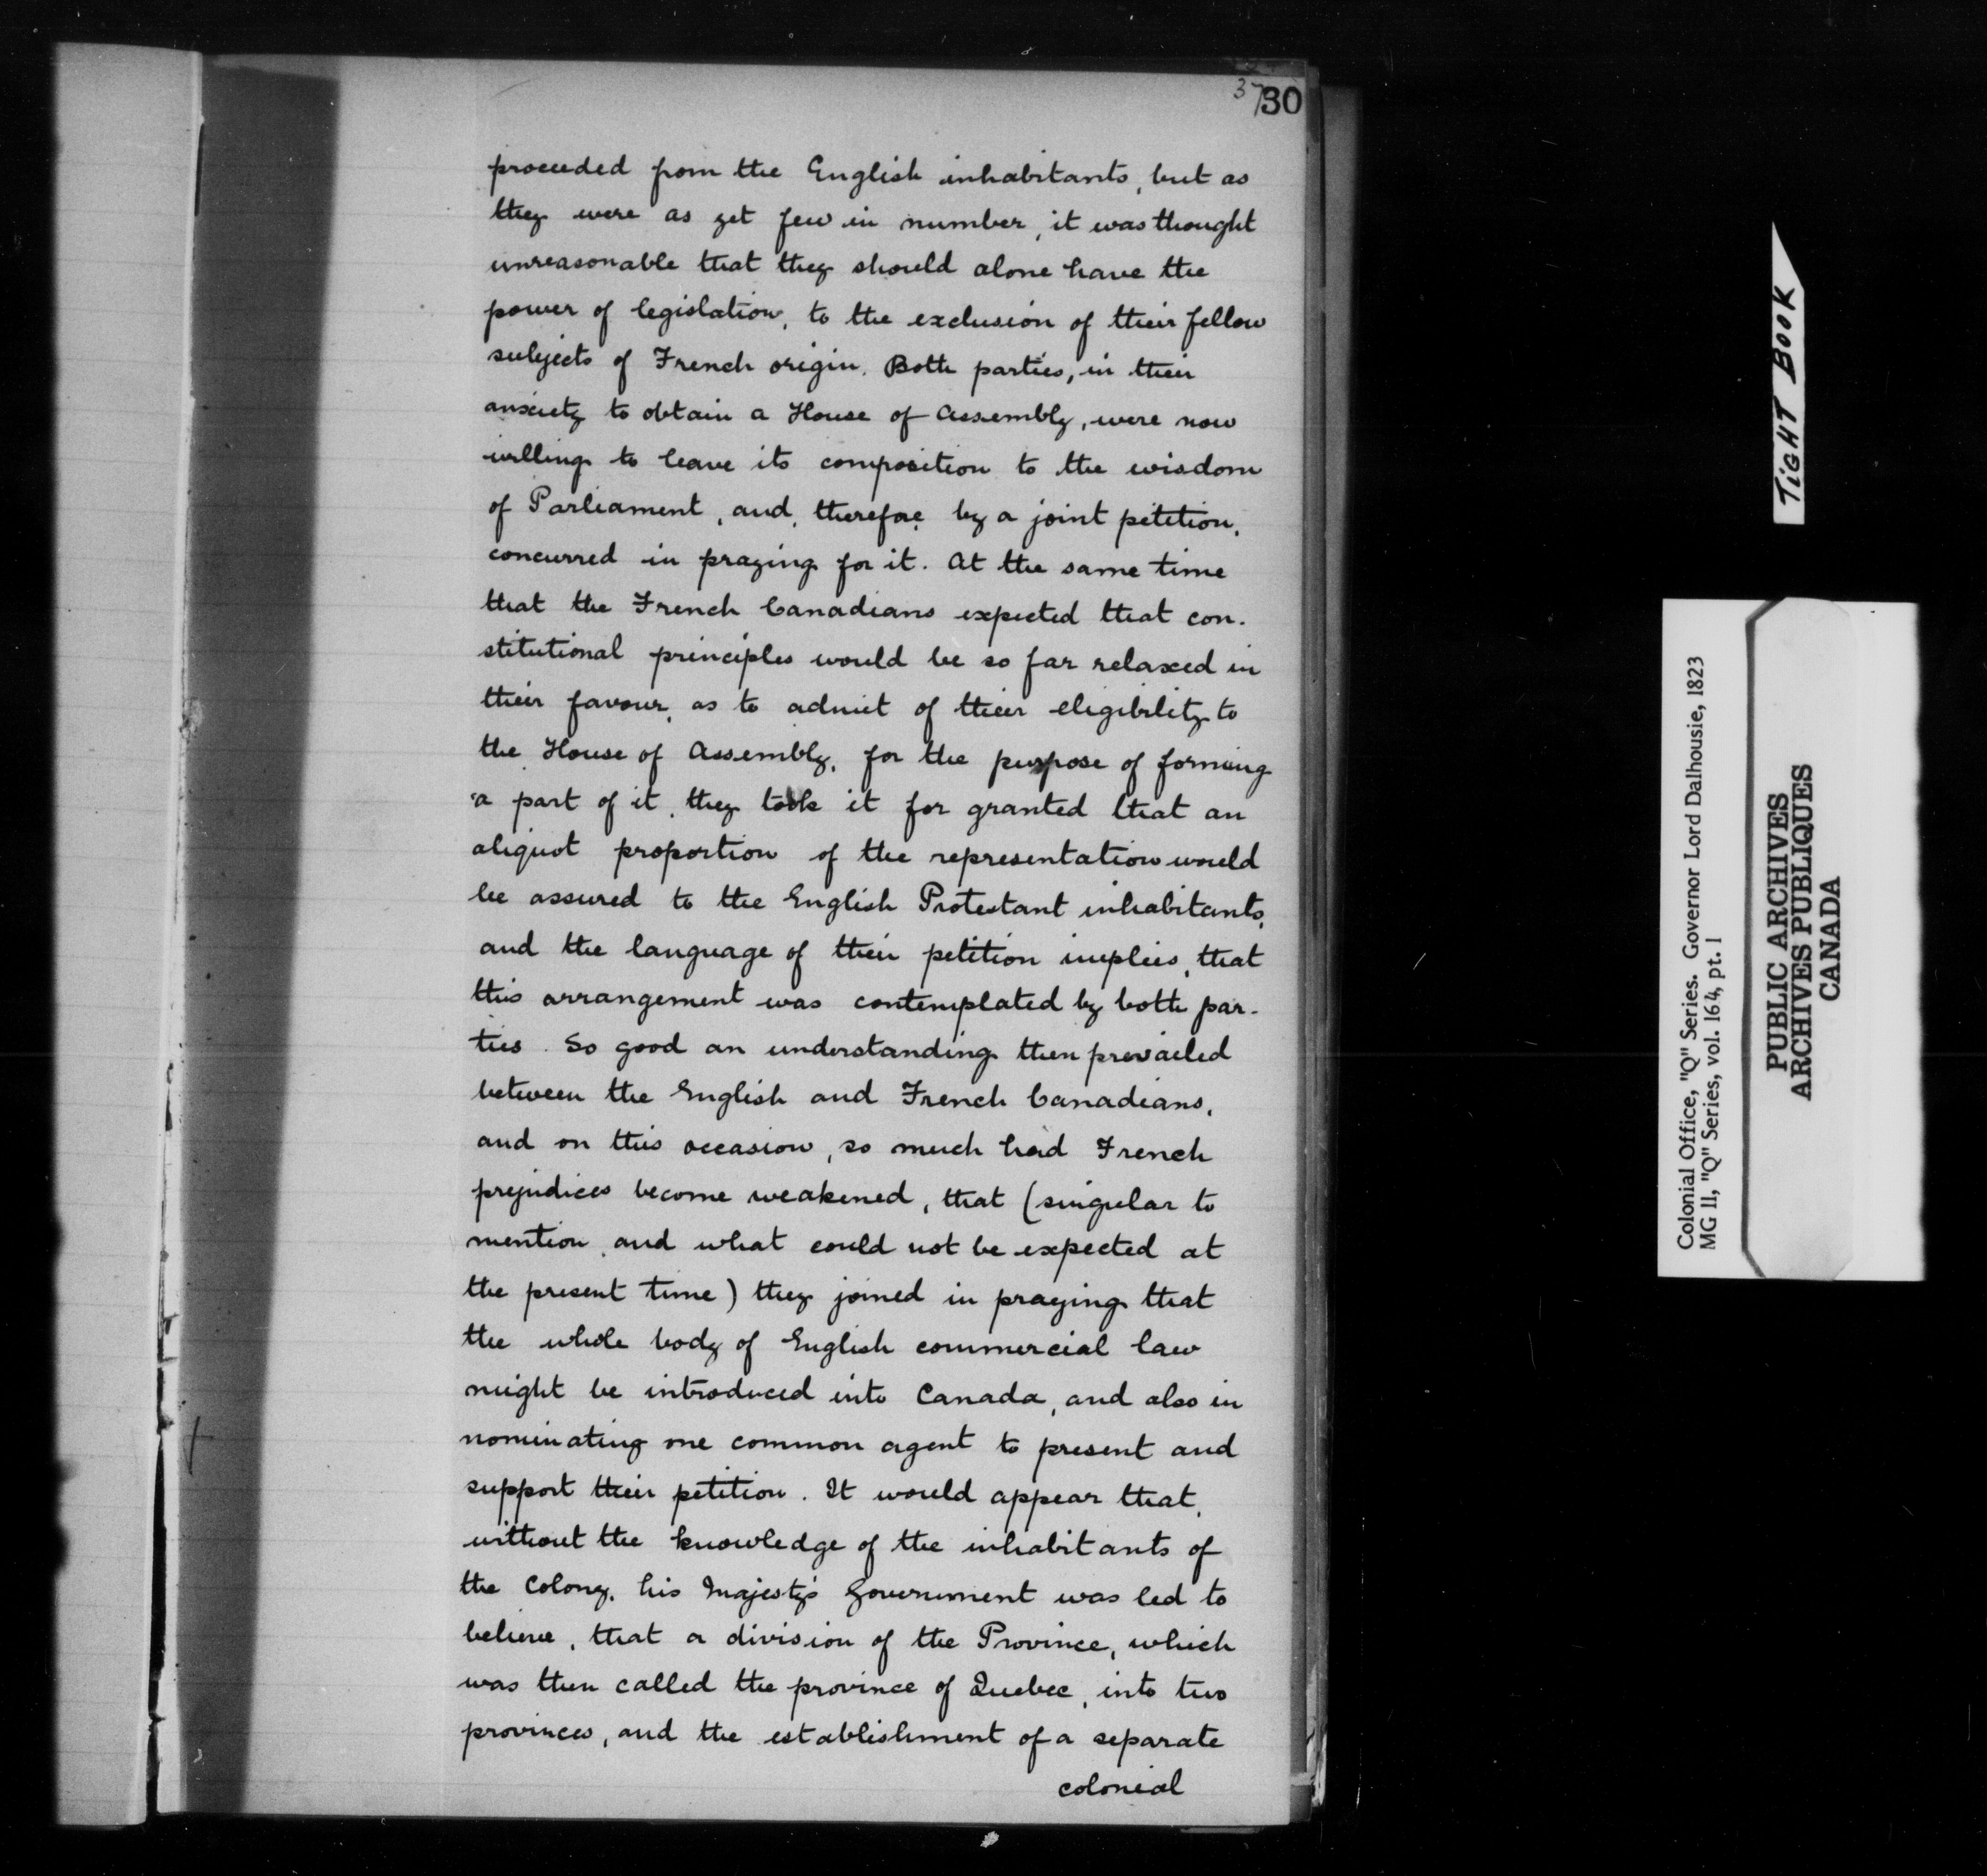 37
30
proceeded from the English inhabitants, but as
they were as yet few in number, it was thought
unreasonable that they should alone have the
power of legislation, to the exclusion of their fellow
subjects of French origin. Both parties, in their
anxiety to obtain a House of Assembly, were now
willing to leave its composition to the wisdom
of Parliament, and, therefore by a joint petition,
concurred in praying for it. At the same time
that the French Canadians expected that con-
stitutional principles would be so far relaxed in
their favour, as to admit of their eligibility to
the House of Assembly, for the purpose of forming
a part of it, they took it for granted that an
aliquot proportion of the representation would
be assured to the English Protestant inhabitants,
and the language of their petition implies, that
this arrangement was contemplated by both par-
ties. So good an understanding then prevailed
between the English and French Canadians,
and on this occasion, so much had French
prejudices become weakened, that (singular to
mention, and what could not be expected at
the present time) they joined in praying that
the whole body of English commercial law
might be introduced into Canada, and also in
nominating one common agent to present and
support their petition. It would appear that,
without the knowledge of the inhabitants of
the Colony, his Majesty's Government was led to
believe, that a division of the Province, which
was then called the province of Quebec, into two
provinces, and the establishment of a separate
colonial
TIGHT BOOK
Colonial Office, "Q" Series. Governor Lord Dalhousie, 1823
MG 11, "Q" Series, vol. 164, pt. 1
PUBLIC ARCHIVES
ARCHIVES PUBLIQUES
CANADA